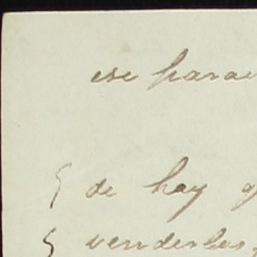 ese parae
de hay q
venderlos,